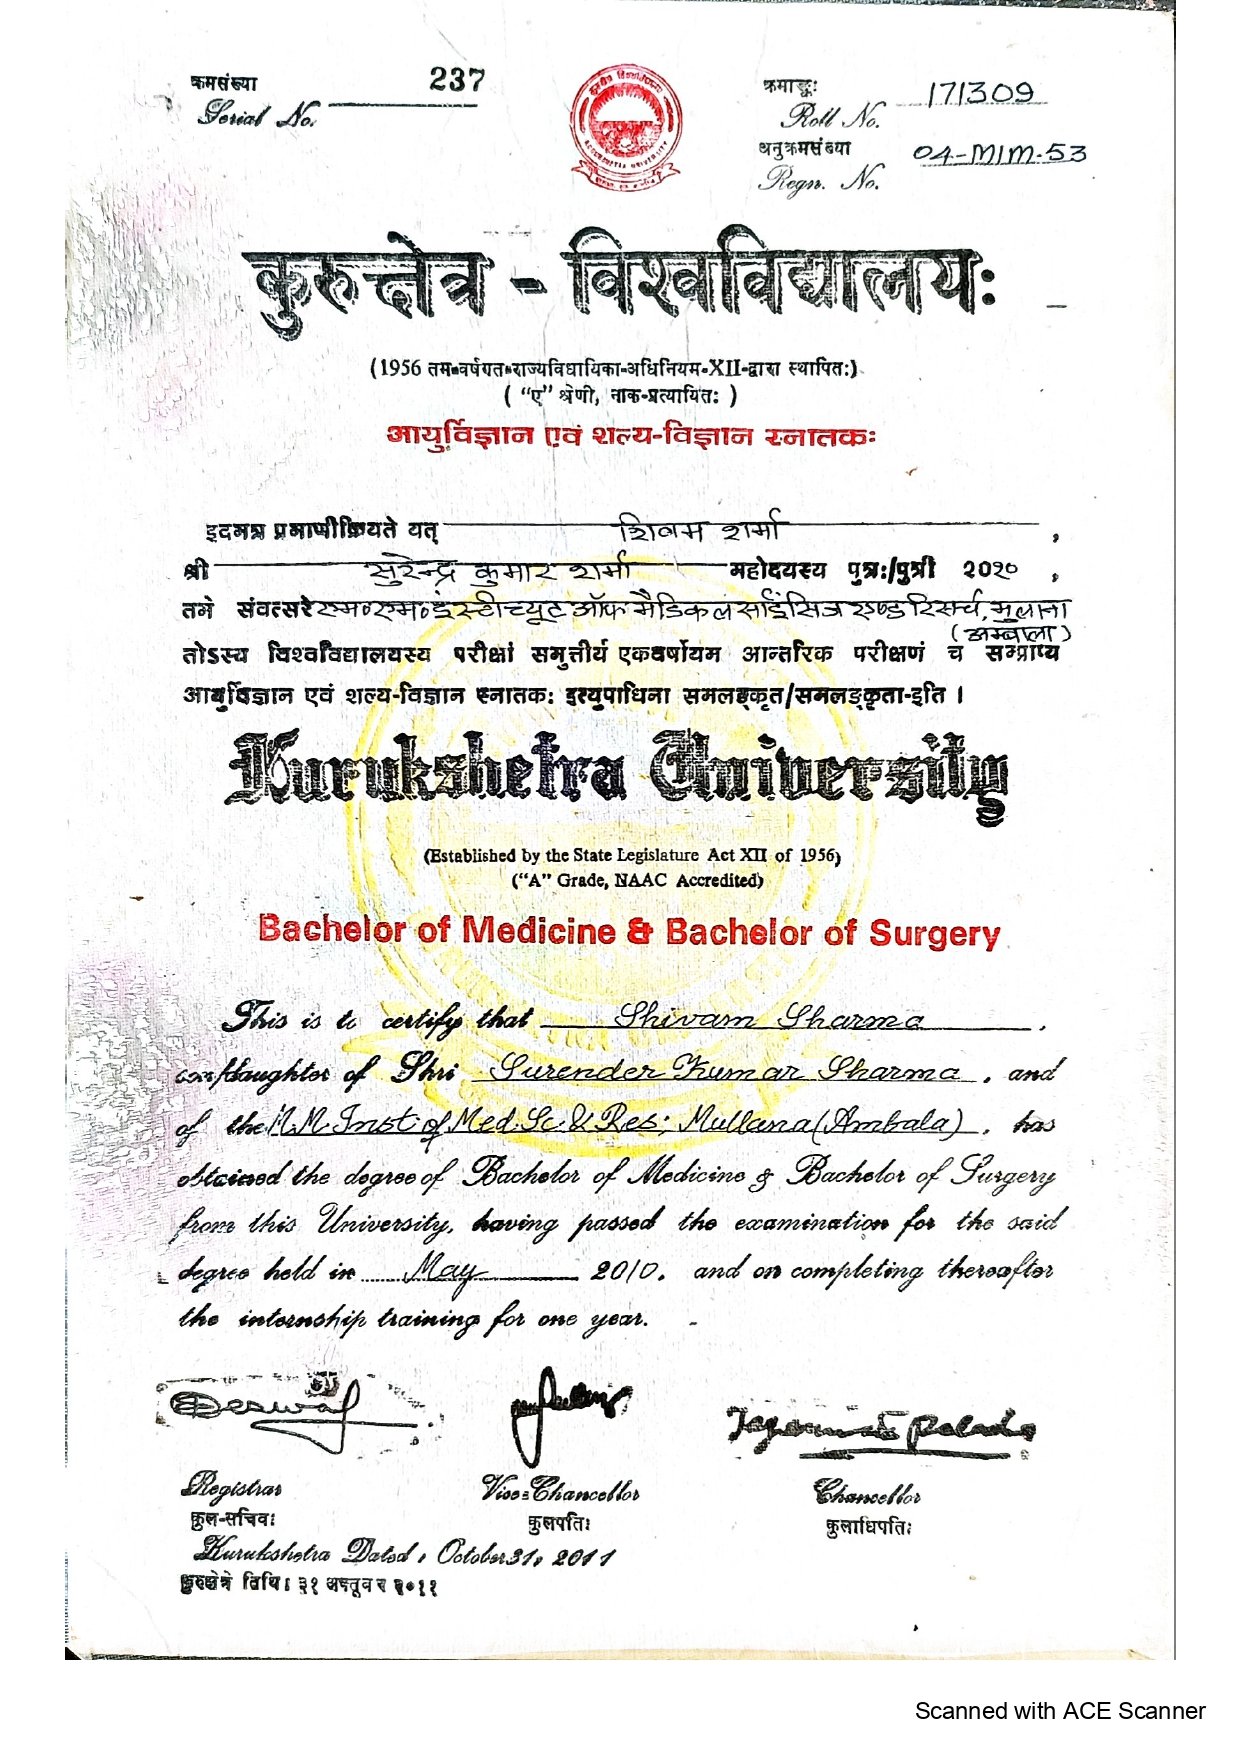 क्रमसंख्या 237
Serial No.
क्रमाङ्कः 171309
Roll No.
अनुक्रमसंख्या 04-MIM-53
Regn. No.
कुरुक्षेत्र - विश्वविद्यालयः
(1956 तम-वर्षगत-राज्यविधायिका-अधिनियम-XII-द्वारा स्थापितः)
( “ए” श्रेणी, नाक-प्रत्यायितः )
आयुर्विज्ञान एवं शल्य-विज्ञान स्नातकः
इदमत्र प्रमाणीक्रियते यत् शिवम शर्मा ,
श्री सुरेन्द्र कुमार शर्मा महोदयस्य पुत्रः/पुत्री २०१० ,
तमे संवत्सरे एम॰ एम॰ इंस्टीच्यूट ऑफ मैडिकल साईंसिज एण्ड रिसर्च, मुलाना
(अम्बाला)
तोऽस्य विश्वविद्यालयस्य परीक्षां समुत्तीर्य एकवर्षीयम आन्तरिक परीक्षणं च सम्प्राप्य
आयुर्विज्ञान एवं शल्य-विज्ञान स्नातकः इत्युपाधिना समलङ्कृत/समलङ्कृता-इति ।
Kurukshetra University
(Established by the State Legislature Act XII of 1956)
(“A” Grade, NAAC Accredited)
Bachelor of Medicine & Bachelor of Surgery
This is to certify that Shivam Sharma ,
son/daughter of Shri Surender Kumar Sharma , and
of the M.M. Inst. of Med. Sc. & Res; Mullana (Ambala) , has
obtained the degree of Bachelor of Medicine & Bachelor of Surgery
from this University, having passed the examination for the said
degree held in May 2010. and on completing thereafter
the internship training for one year.
Registrar Vice-Chancellor Chancellor
कुल-सचिवः कुलपतिः कुलाधिपतिः
Kurukshetra Dated, October 31, 2011
कुरुक्षेत्रे तिथिः ३१ अक्तूबर २०११
Scanned with ACE Scanner